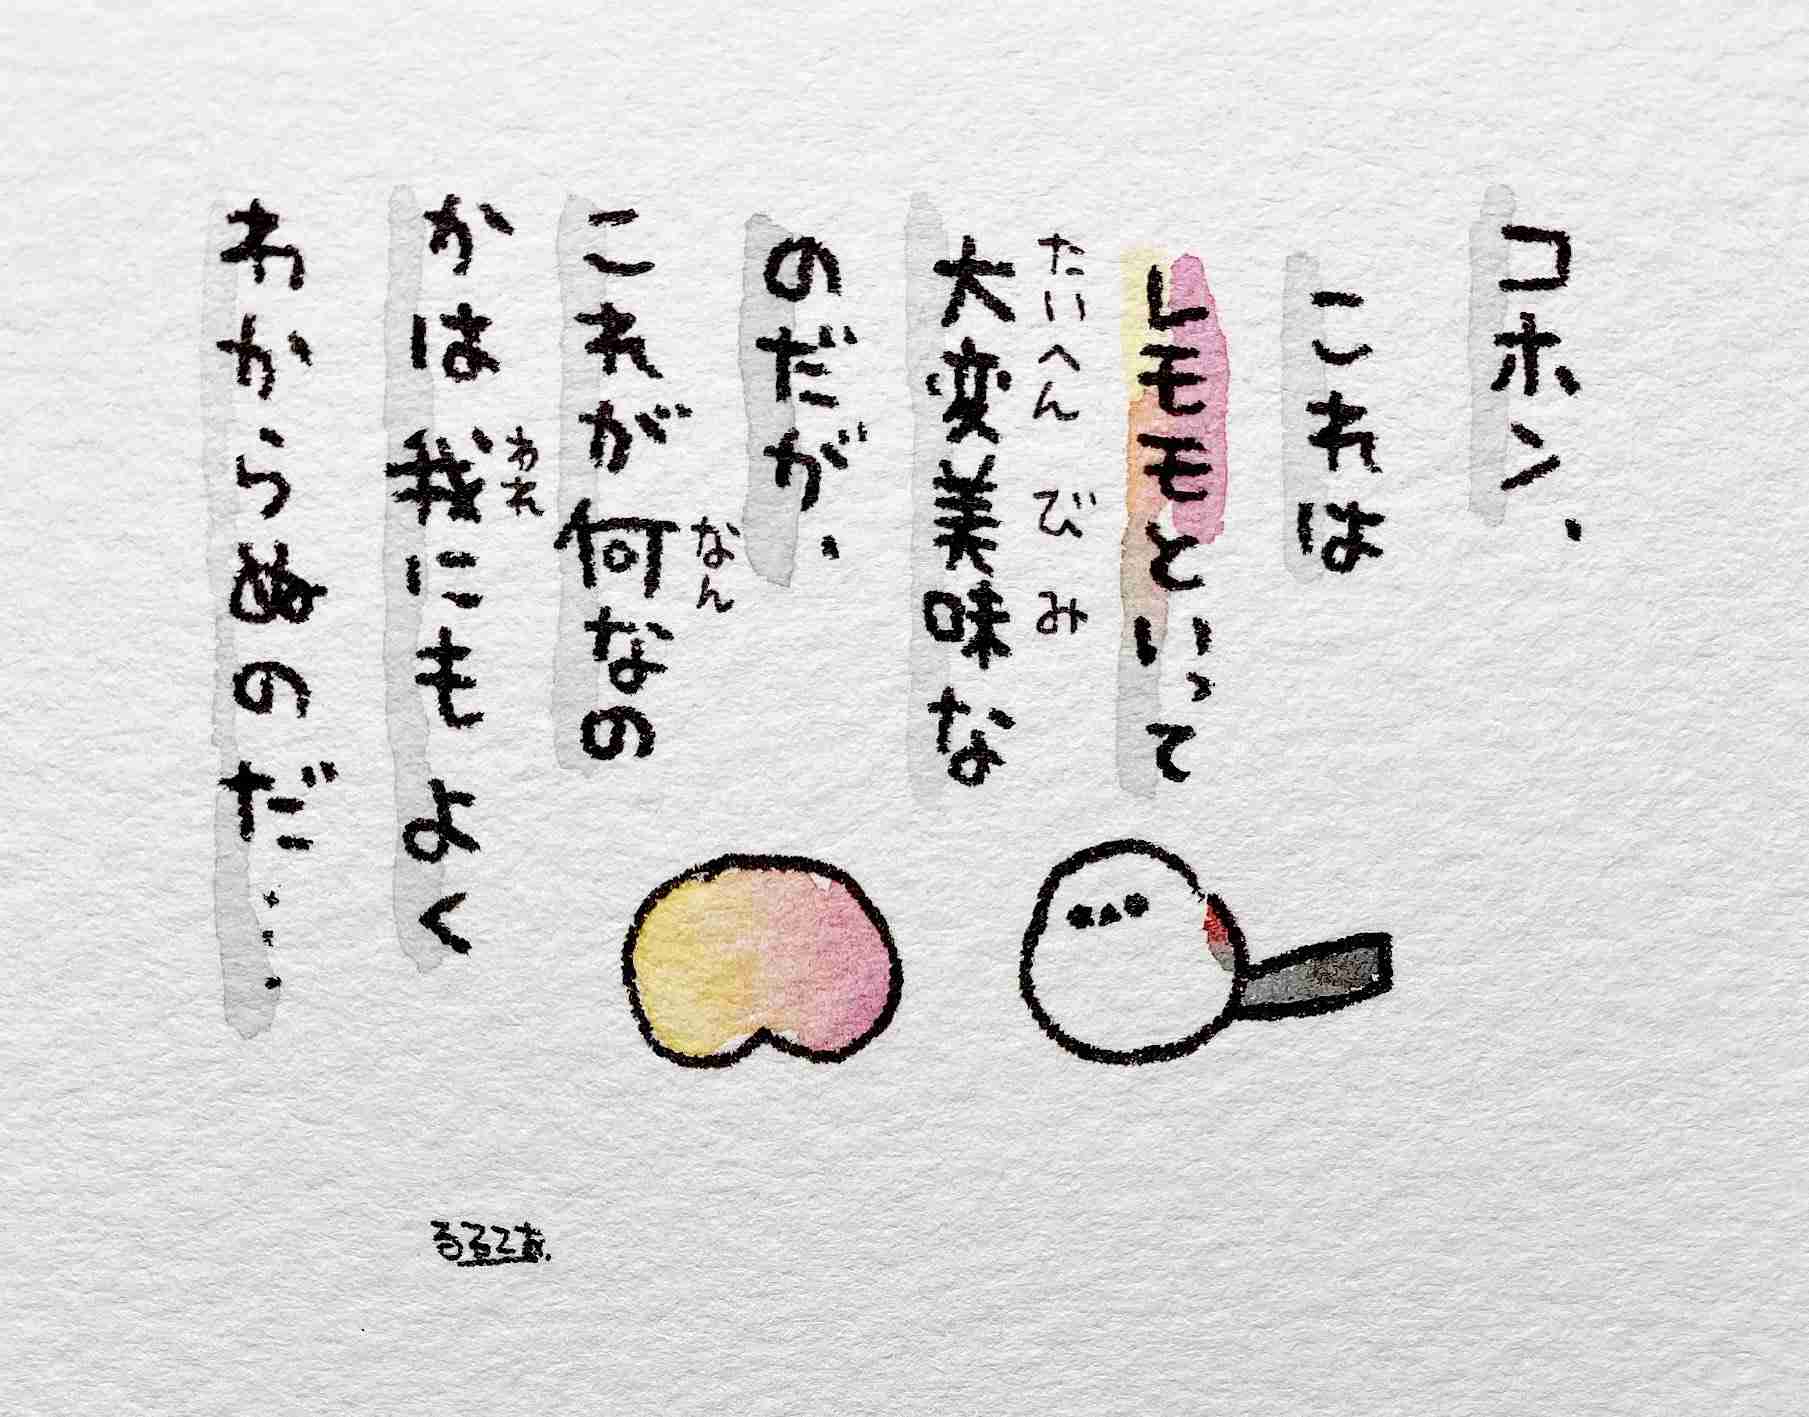 コホン、
これは
レモモといって
大変美味な
たいへん びみ
のだが、
これが何なの
なん
かは我にもよく
われ
わからぬのだ…